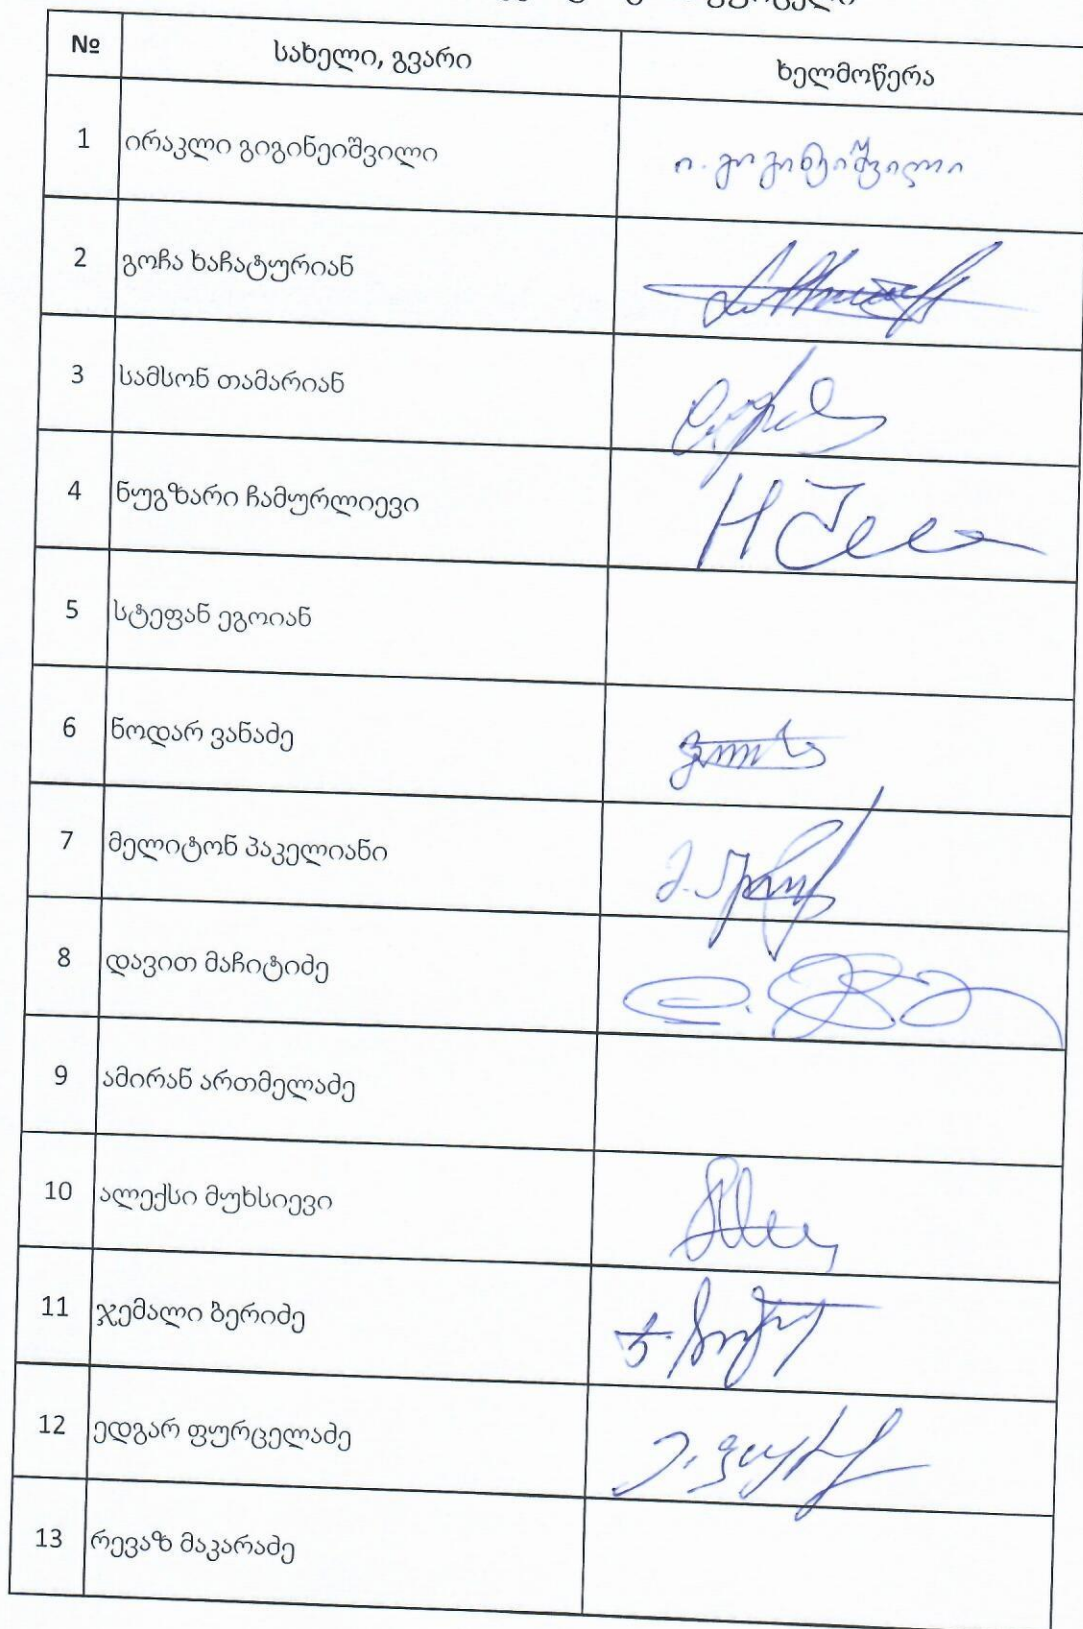 № სახელი, გვარი ხელმოწერა
1 ირაკლი გიგინეიშვილი ი. გიგინეიშვილი
2 გოჩა ხაჩატურიან
3 სამსონ თამარიან
4 ნუგზარი ჩამურლიევი
5 სტეფან ეგოიან
6 ნოდარ ვანაძე
7 მელიტონ პაკელიანი
8 დავით მაჩიტიძე
9 ამირან ართმელაძე
10 ალექსი მუხსიევი
11 ჯემალი ბერიძე
12 ედგარ ფურცელაძე
13 რევაზ მაკარაძე